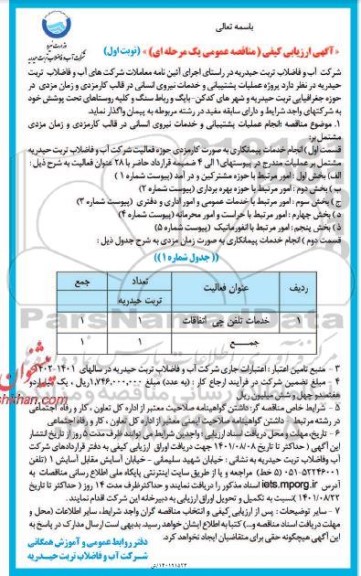 باسمه تعالی
وزارت نیرو
شرکت آب و فاضلاب تربت حیدریه
«آگهی ارزیابی کیفی (مناقصه عمومی یک مرحله ای)» (نوبت اول)
شرکت آب و فاضلاب تربت حیدریه در راستای اجرای آئین نامه معاملات شرکت های آب و فاضلاب تربت
حیدریه در نظر دارد پروژه عملیات پشتیبانی و خدمات نیروی انسانی در قالب کارمزدی و زمان مزدی در
حوزه جغرافیایی تربت حیدریه و شهر های کدکن- بایگ و رباط سنگ و کلیه روستاهای تحت پوشش خود
به شرکتهای واجد شرایط و دارای سابقه مفید در رشته مربوطه به پیمان واگذار نماید.
۱. موضوع مناقصه :انجام عملیات پشتیبانی و خدمات نیروی انسانی در قالب کارمزدی و زمان مزدی
مشتمل بر:
قسمت اول ) انجام خدمات پیمانکاری به صورت کارمزدی حوزه فعالیت شرکت آب و فاضلاب تربت حیدریه
مشتمل بر عملیات مندرج در پیوستهای ۱ الی ۴ ضمیمه قرارداد حاضر با ۲۸ عنوان فعالیت به شرح ذیل :
الف) بخش اول : امور مرتبط با حوزه مشترکین و در آمد (پیوست شماره ۱ )
ب ) بخش دوم : امور مرتبط با حوزه بهره برداری (پیوست شماره ۲)
ج ) بخش سوم : امور مرتبط با خدمات عمومی و امور اداری و دفتری (پیوست شماره ۳)
د ) بخش چهارم : امور مرتبط با حراست و امور محرمانه (پیوست شماره ۴)
ذ ) بخش پنجم : امور مرتبط با انفورماتیک (پیوست شماره ۵)
قسمت دوم ) انجام خدمات پیمانکاری به صورت زمان مزدی به شرح جدول ذیل :
((جدول شماره ۱))
ردیف عنوان فعالیت تعداد جمع
تربت حیدریه
۱ خدمات تلفن چی اتفاقات ۱ ۱
جمــع ۱ ۱
۳ - منبع تامین اعتبار : اعتبارات جاری شرکت آب و فاضلاب تربت حیدریه در سالهای ۱۴۰۱-۱۴۰۲
۴ - مبلغ تضمین شرکت در فرآیند ارجاع کار : (به عدد) مبلغ ۱,۷۴۶,۰۰۰,۰۰۰ ریال ، یک میلیارد و
هفتصد و چهل و شش میلیون ریال
۵ - شرایط خاص مناقصه گر: داشتن گواهینامه صلاحیت معتبر از اداره کل تعاون ، کار و رفاه اجتماعی
در رشته مرتبط ؛ داشتن گواهینامه صلاحیت ایمنی معتبر از اداره کل تعاون ، کار و رفاه اجتماعی
۶ - تاریخ، مهلت و محل دریافت اسناد ارزیابی : واجدین شرایط می توانند ظرف مدت ۵ روز از تاریخ انتشار
این آگهی ( حداکثر تا تاریخ ۱۴۰۱/۰۸/۰۸ جهت دریافت اوراق ارزیابی کیفی به دفتر قراردادهای شرکت
آب و فاضلاب تربت حیدریه به نشانی : خیابان شهید سلیمانی - خیابان آسایش مقابل آسایش ۱ (تلفن
iets.mporg.ir اسناد مذکور را دریافت نمایند و حداکثر ظرف مدت ۱۴ روز ( حداکثر تا تاریخ
۱۴۰۱/۰۸/۲۲ )نسبت به تکمیل و تحویل اوراق ارزیابی به دبیرخانه این شرکت اقدام نمایند.
۷ - سایر توضیحات : پس از ارزیابی کیفی و انتخاب مناقصه گران واجد شرایط، سایر اطلاعات (محل و
مهلت دریافت اسناد مناقصه و...) کتبا به اطلاع ایشان خواهد رسید. بدیهی است ارسال مدارک در پاسخ به
این آگهی هیچگونه حقی برای متقاضیان ایجاد نخواهد کرد.
دفتر روابط عمومی و آموزش همگانی
شرکت آب و فاضلاب تربت حیدریه